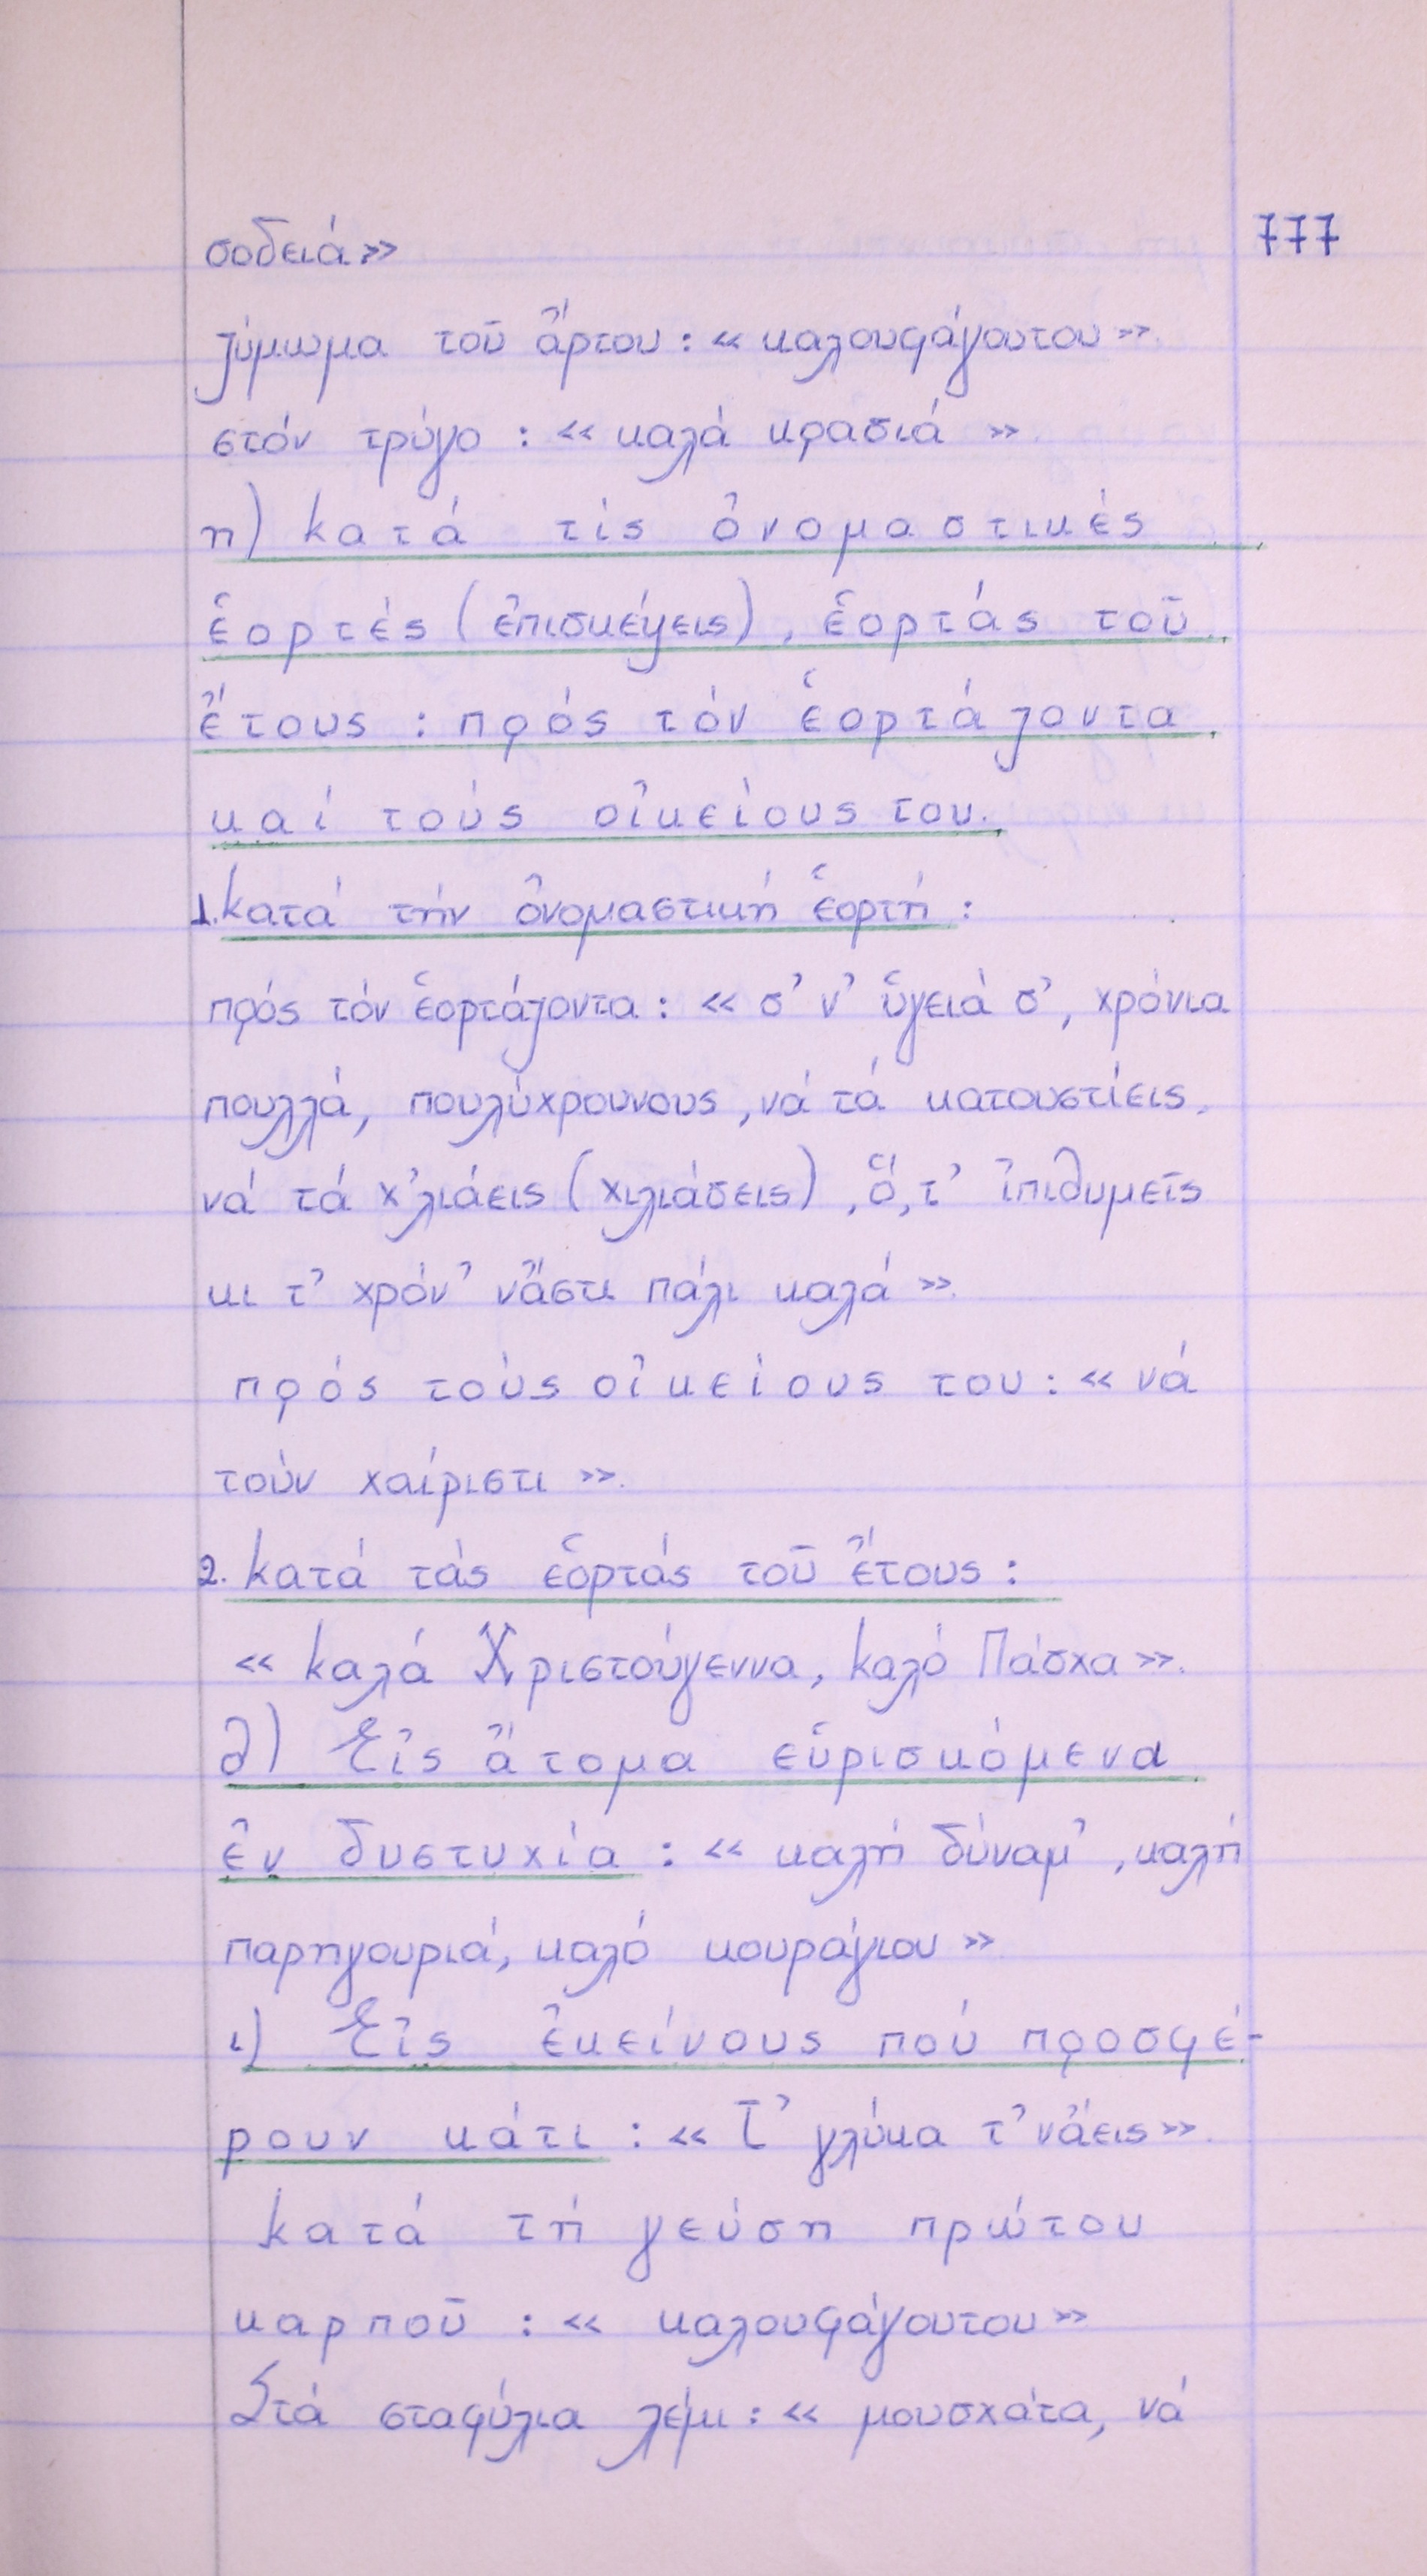 σοδειά»
777
ζύμωμα τοῦ ἄρτου : « καλουφάγουτου ».
στόν τρύγο : « καλά κρασιά »
η) Κατά τίς ὀνομαστικές
ἑορτές (ἐπισκέψεις), ἑορτάς τοῦ
ἔτους : πρός τόν ἑορτάζοντα
καί τούς οἰκείους του.
1. Κατά τήν ὀνομαστική ἑορτή :
πρός τόν ἑορτάζοντα : « σ' ν' ὑγειά σ', χρόνια
πουλλά, πουλύχρουνους, νά τά κατουστίεις,
νά τά χ'λιάεις (χιλιάσεις), ὅ,τ' ἰπιθυμεῖς
κι τ' χρόν' νἄστι πάλι καλά ».
πρός τούς οἰκείους του : « νά
τούν χαίριστι ».
2. Κατά τάς ἑορτάς τοῦ ἔτους :
« Καλά Χριστούγεννα, Καλό Πάσχα ».
θ) Εἰς ἄτομα εὑρισκόμενα
ἐν δυστυχία : « καλή δύναμ', καλή
παρηγουριά, καλό κουράγιου »
ι) Εἰς ἐκείνους πού προσφέ-
ρουν κάτι : « Τ' γλύκα τ' νἄεις ».
Κατά τή γεύση πρώτου
καρποῦ : « καλουφάγουτου »
Στά σταφύλια λέμι : « μουσχάτα, νά